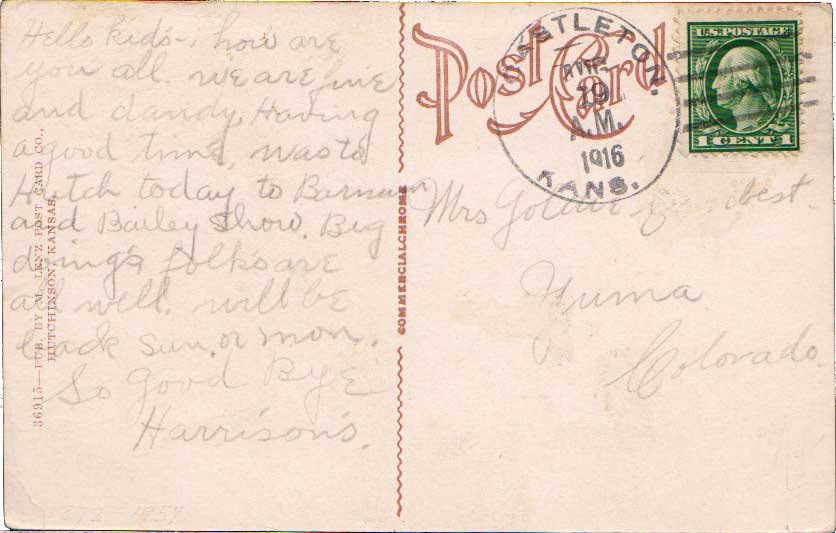 Hello kids-, how are
you all. we are fine
and dandy, Having
a good time, was to
Hutch today to Barnum
and Bailey Show. Big
doing's folks are
all well. will be
back sun. or mon.
So Good Bye
Harrison's.
36915—PUB. BY M. LENZ POST CARD CO.,
HUTCHINSON, KANSAS.
COMMERCIALCHROME
Post Card
CASTLETON.
19
A.M.
1916
KANS.
U.S. POSTAGE
1 CENT 1
Mrs
Yuma
Colorado.